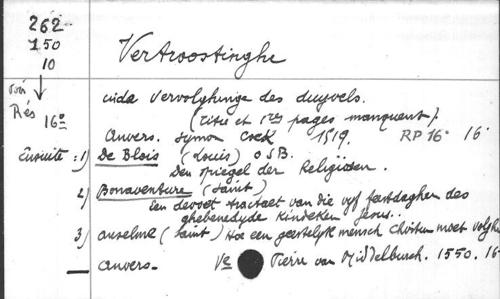 262
150
10
Vertroostinghe
voir
Rés
16º
inda Vervolghinge des duyvels.
(titre et 1res pages manquent).
Anvers. Symon Cock 1519. RP 16º 16º
Ensuite : 1) De Blois (Louis) O S B.
Den spiegel der Religiösen.
2) Bonaventure (Saint)
Een devoet tractaet van die vyf feestdaghen des
ghebenedyde Kindeken Jesus..
3) Anselme (Saint) Hoe een geestelyk mensch Christum moet volghe
Anvers. Ve Pierre van Middelburch. 1550. 16